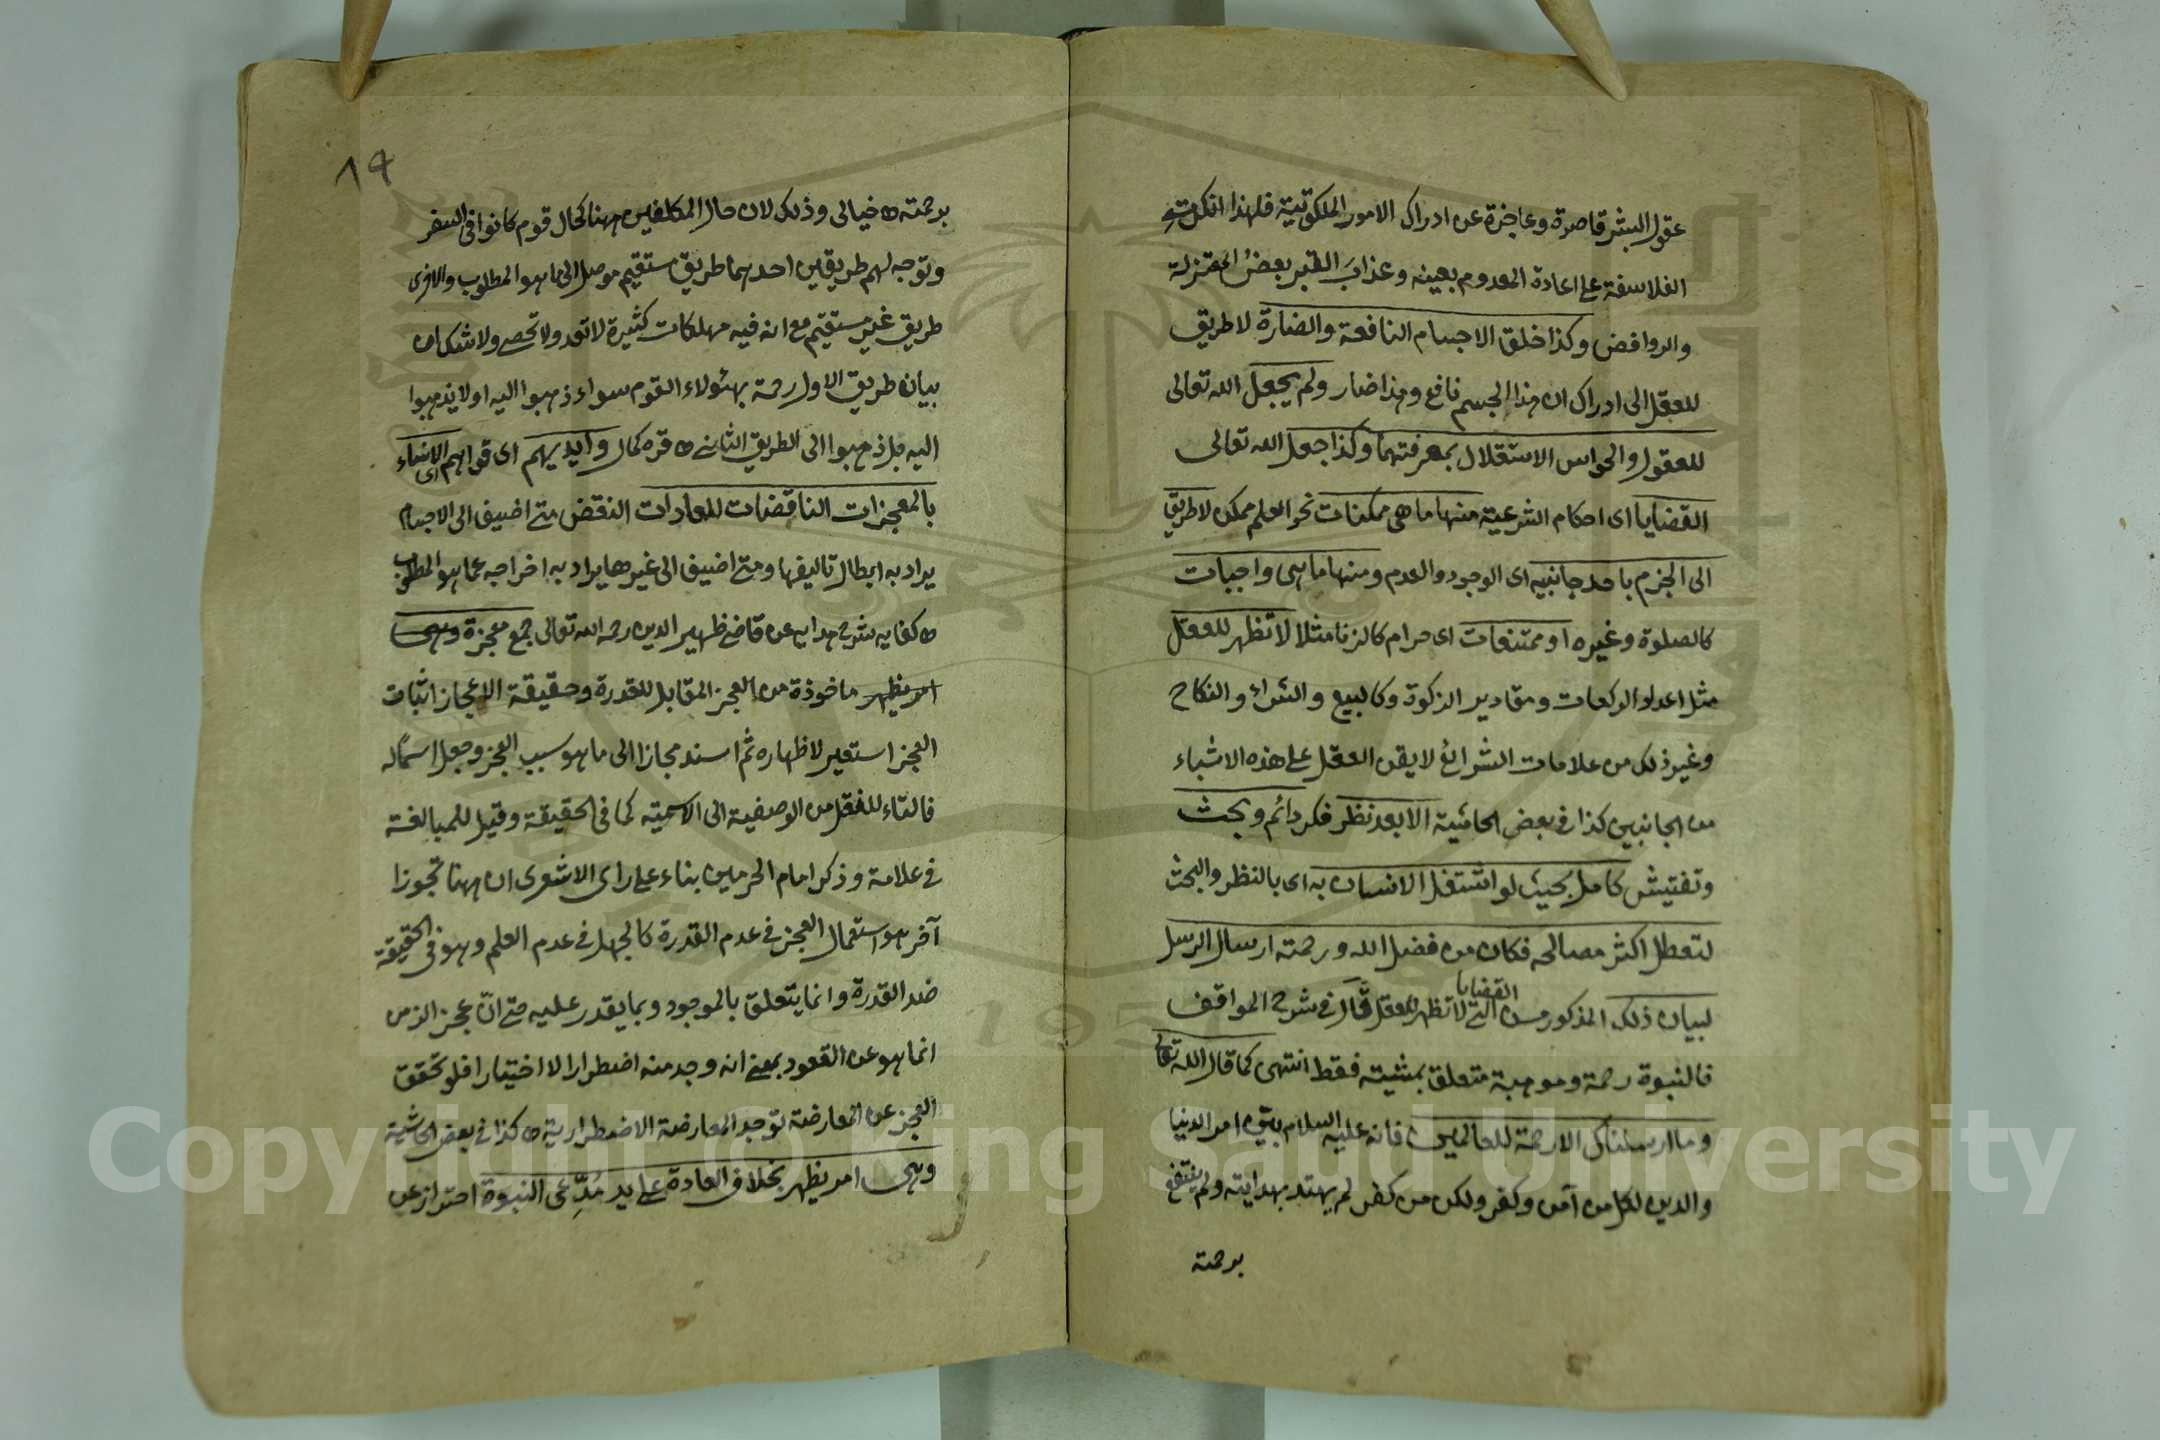 عقول البشر قاصرة وعاجزة عن ادراك الامور الملكوتية فلهذا انكر
الفلاسفة على اعادة المعدوم بعينه وعذابَ القبر بعضُ المعتزلة
والروافض وكذا خلق الاجسام النافعة والضارة لا طريق
للعقل الى ادراك ان هذا الجسم نافع وهذا ضار ولم يجعل الله تعالى
للعقول والحواس الاستقلال بمعرفتهما وكذا جعل الله تعالى
القضايا اى احكام الشرعية منها ما هى ممكنات نحو العلم ممكن لا طريق
الى الجزم باحد جانبيه اى الوجود والعدم ومنها ما هى واجبات
كالصلوة وغيره او ممتنعات اى حرام كالزنا مثلا لا تظهر للعقل
مثل اعداد الركعات ومقادير الزكوة وكالبيع والشراء والنكاح
وغير ذلك من علامات الشرائع لا يقن العقل على هذه الاشياء
من الجانبين كذا فى بعض الحاشية الا بعد نظر فكر دائم وبحث
وتفتيش كامل بحيث لو اشتغل الانسان به اى بالنظر والبحث
لتعطل اكثر مصالحه فكان من فضل الله ورحمته ارسال الرسل
القضايا
لبيان ذلك المذكور من التى لا تظهر للعقل قال فى شرح المواقف
فالنبوة رحمة وموهبة متعلق بمشيته فقط انتهى كما قال الله تعالى
وما ارسلناك الا رحمة للعالمين فانه عليه السلام بيّن امر الدنيا
والدين لكل من آمن وكفر ولكن من كفر لم يهتد بهدايته ولم ينتفع
برحمته
٨٩
برحمته خيالى وذلك لان حال المكلفين ههنا كحال قوم كانوا فى السفر
وتوجه لهم طريقين احدهما طريق مستقيم موصل الى ما هو المطلوب والاخرى
طريق غير مستقيم مع انه فيه مهلكات كثيرة لا تعد ولا تحصى ولا شك ان
بيان طريق الاول رحمة بهئولاء القوم سواء ذهبوا اليه او لا يذهبوا
اليه بل ذهبوا الى الطريق الثانى قره كمال وايديهم اى قواهم اى الانبياء
بالمعجزات الناقضات للعادات النقض متى اضيف الى الاجسام
يراد به ابطال تاليفها ومتى اضيف الى غيرها يراد به اخراجه عما هو المطلوب
كفايه شرح هدايه عن قاضى ظهير الدين رحمه الله تعالى جمع معجزة وهى
امر يظهر ماخوذة من العجز المقابل للقدرة وحقيقة الاعجاز اثبات
العجز استعير لاظهاره ثم اسند مجازا الى ما هو سبب العجز وجعل اسمًا له
فالتاء للنقل من الوصفية الى الاسمية كما فى الحقيقة وقيل للمبالغة
فى علامة وذكر امام الحرمين بناء على راى الاشعرى ان ههنا تجوزا
آخر هو استعمال العجز فى عدم القدرة كالجهل فى عدم العلم وهو فى الحقيقة
ضد القدرة وانما يتعلق بالموجود وبما يقدر عليه حتى انّ عجز الزمن
انما هو عن القعود بمعنى انه وجد منه اضطرارا لا اختيارا فلو تحقق
العجز عن المعارضة لوجد المعارضة الاضطرارية كذا فى بعض الحاشية
وهى امر يظهر بخلاف العادة على يد مُدّعِى النبوة احتراز عن
Copyright © King Saud University
1957